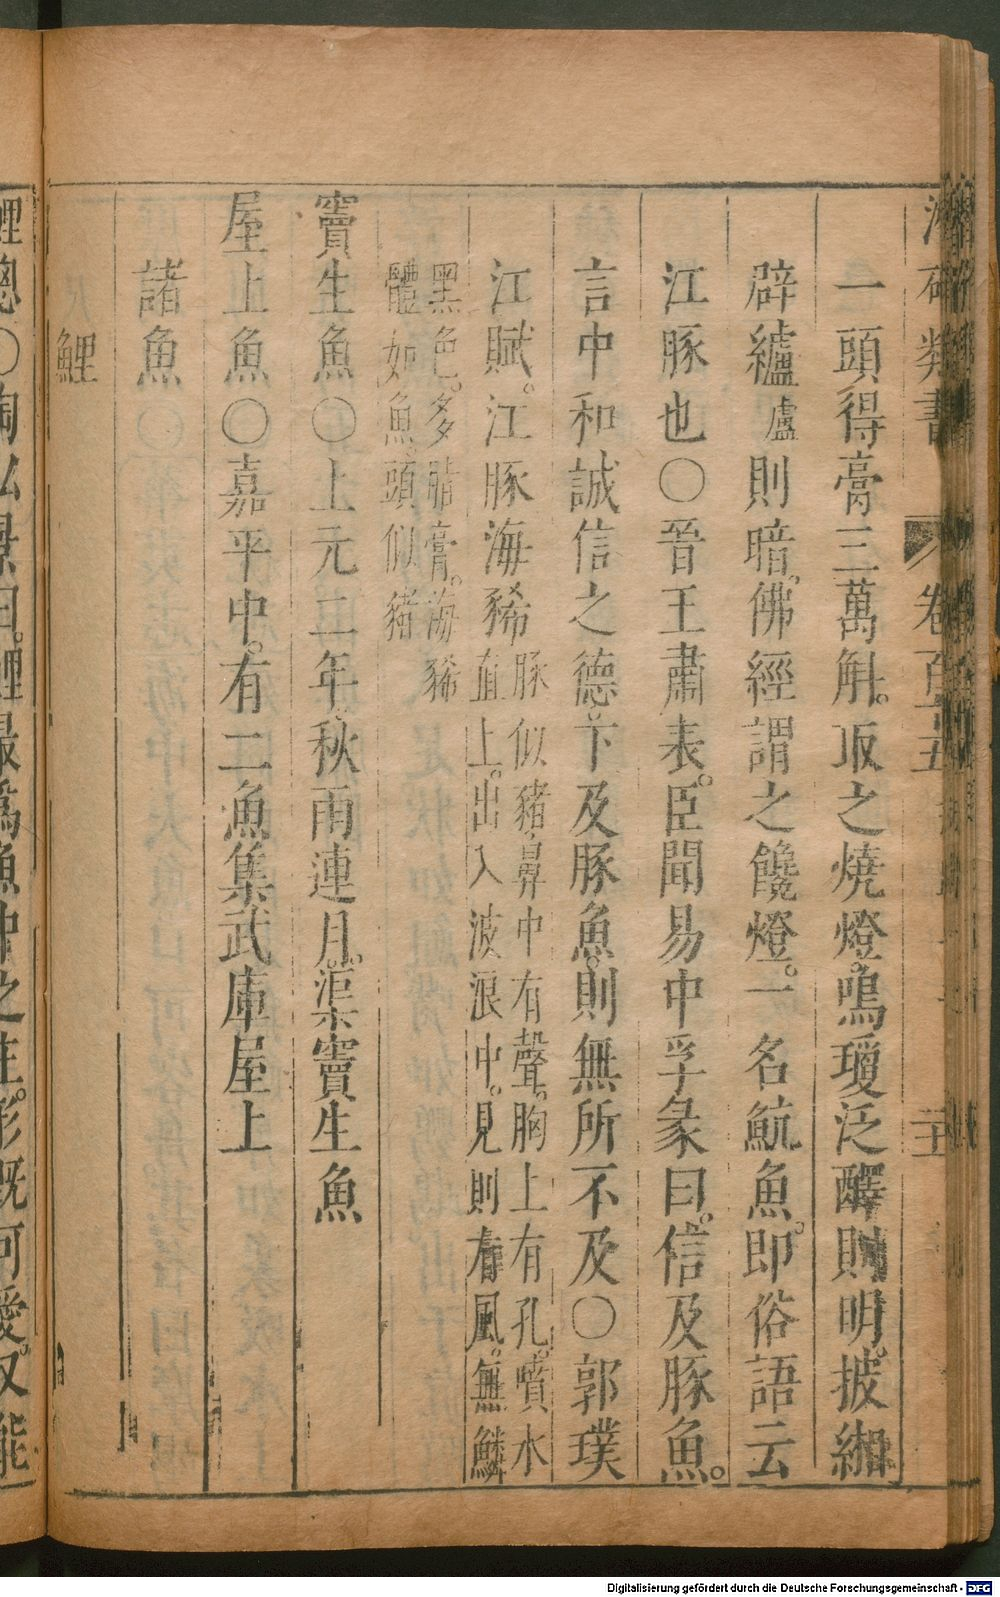 類書 卷百五 二十
一頭得膏三萬斛。取之燒燈。鳴瓊泛醳則明。披緗
辟纑盧則暗。佛經謂之饞燈。一名魧魚。即俗語云
江豚也〇晉王肅表。臣聞易中孚彖曰。信及豚魚。
言中和誠信之德下及豚魚。則無所不及〇郭璞
江賦。江豚海豨豚似豬。鼻中有聲。胸上有孔。噴水
直上。出入波浪中。見則有風。無鱗
黑色。多脂膏。海豨
體如魚。頭似豬
竇生魚〇上元二年秋雨連月。渠竇生魚
屋上魚〇嘉平中。有二魚集武庫屋上
諸魚
鯉
鯉總〇陶弘景曰。鯉最爲魚中之主。形既可愛。又能
Digitalisierung gefördert durch die Deutsche Forschungsgemeinschaft - DFG